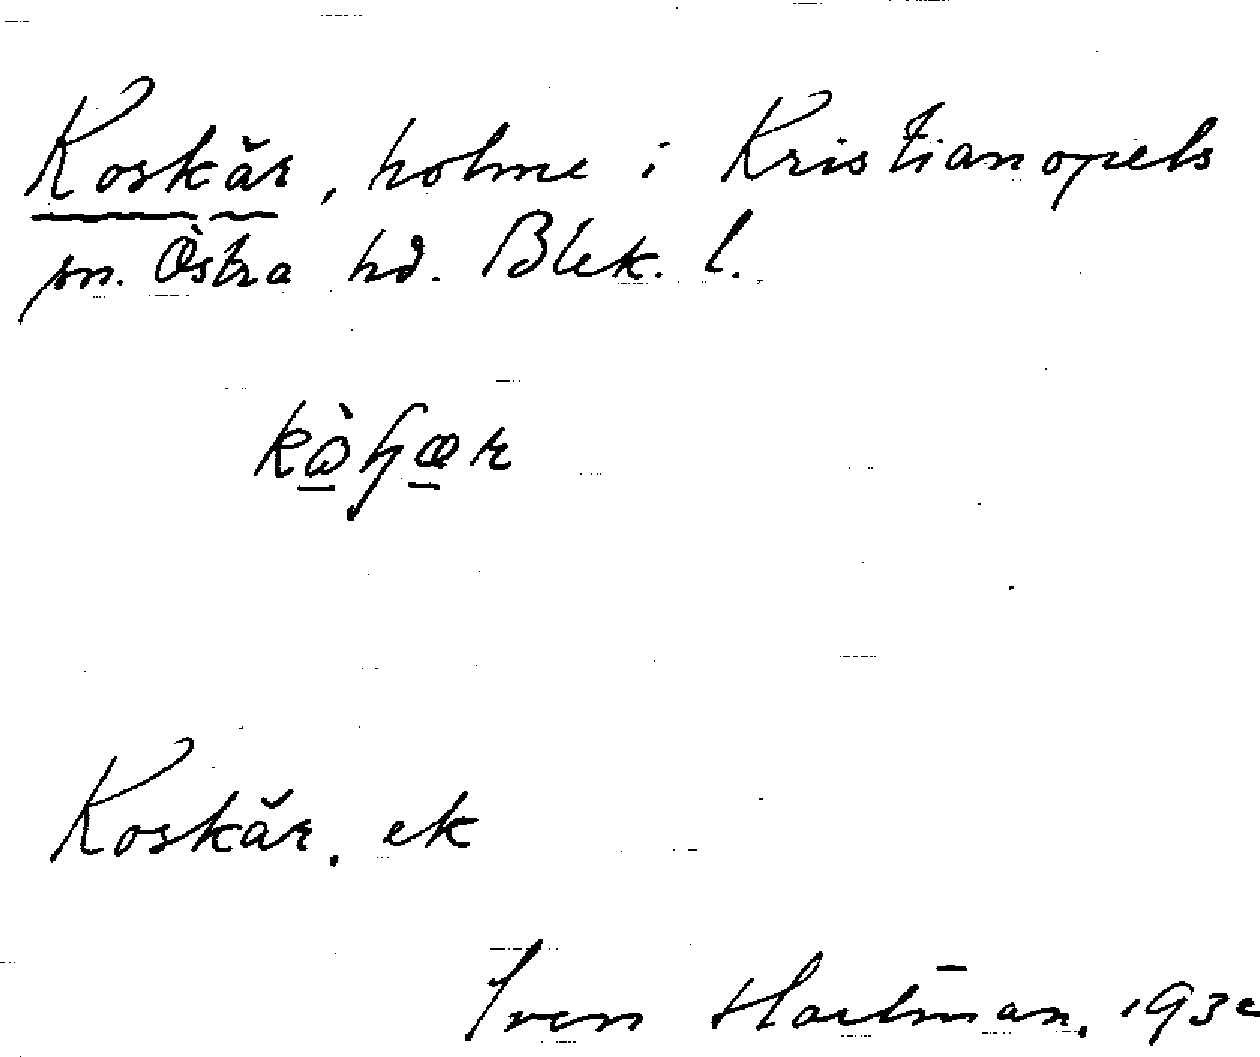 Koskär, holme i Kristianopels
sn. Östra hd. Blek. l.
Koskär. ek
Sven Hartman, 193